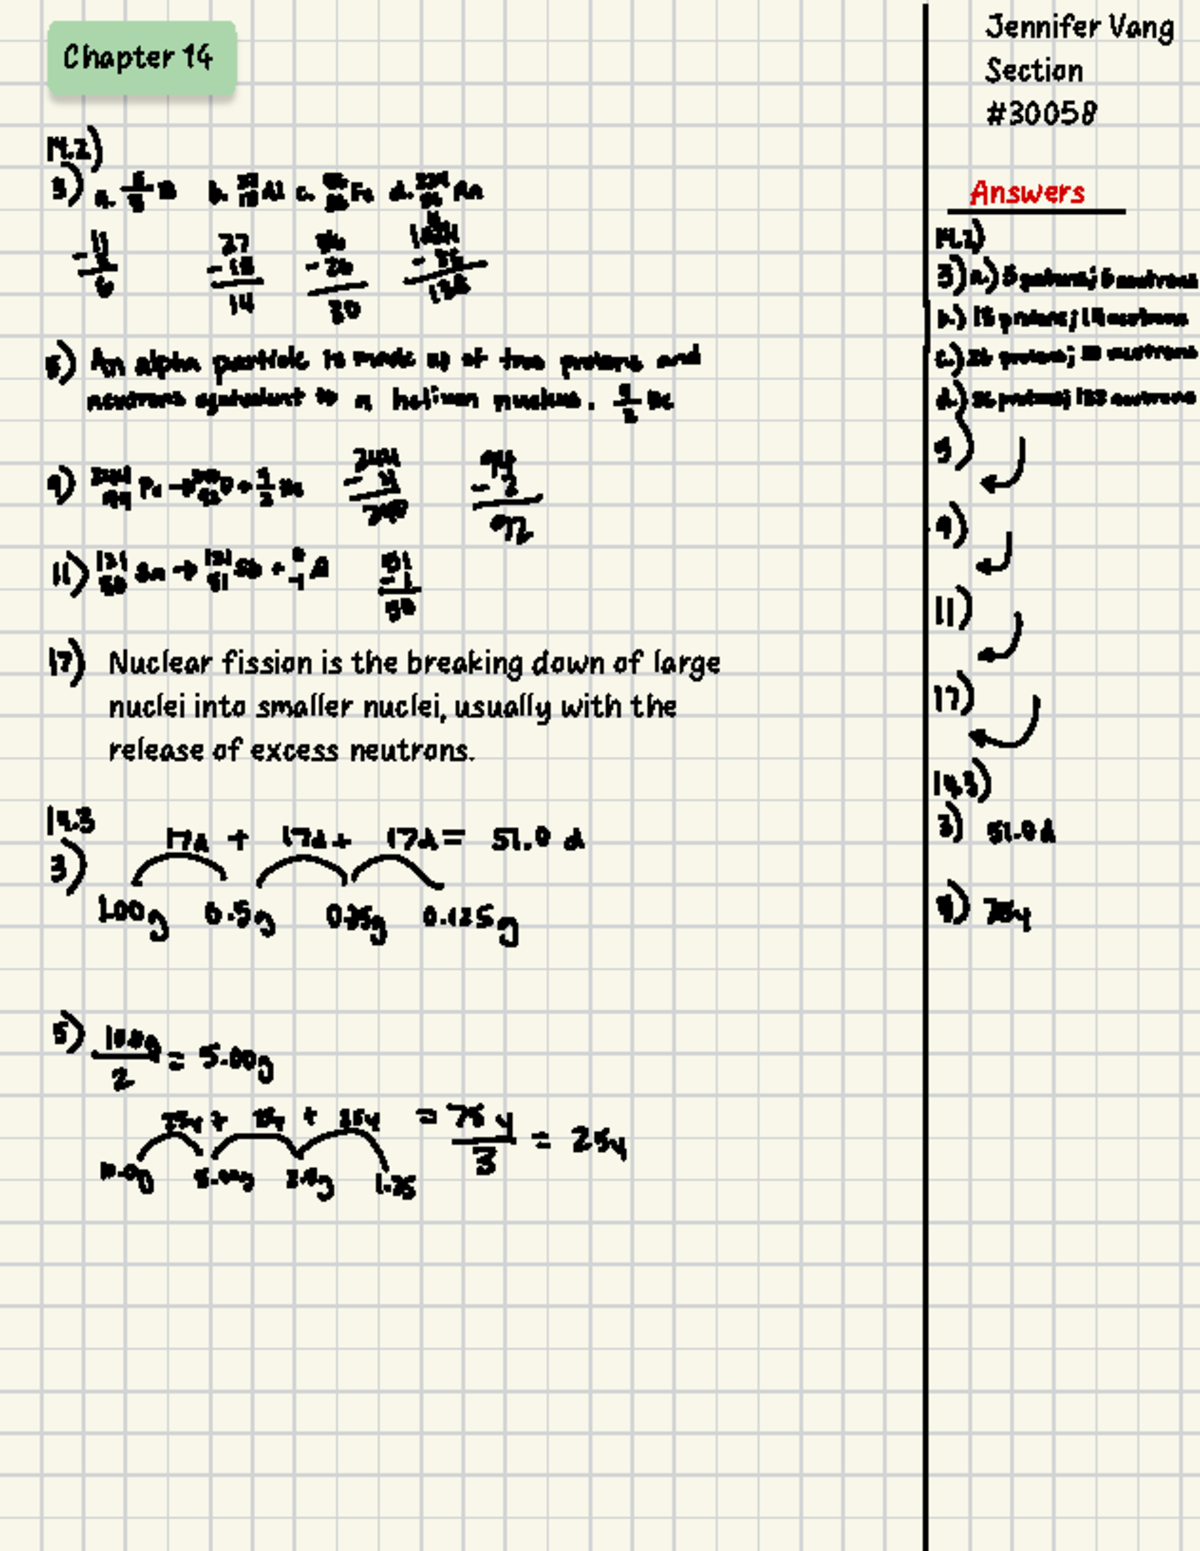 Chapter 14
14.2)
3) a. B b. 27 13 Al c. 56 26 Fe d. 224 86 Rn
- 11
6
27
- 13
14
56
- 26
30
- 86
138
5) An alpha particle is made up of two protons and
neutrons equivalent to a helium nucleus. 4/2 He
9) 244 94 Pu → 240 92 U + 4/2 He
244
- 4
240
94
- 2
92
11) 121 50 Sn → 121 51 Sb + 0 -1
51
- 1
50
17) Nuclear fission is the breaking down of large
nuclei into smaller nuclei, usually with the
release of excess neutrons.
14.3
3) 17d + 17d + 17d = 51.0 d
1.00g 0.5g 0.25g 0.125g
5) 10.0g / 2 = 5.00g
25y + 25y + 25y = 75 y / 3 = 25y
10.0g 5.00g 2.5g 1.25
Jennifer Vang
Section
#30058
Answers
14.2)
3) a.) 5 protons; 6 neutrons
b.) 13 protons; 14 neutrons
c.) 26 protons; 30 neutrons
d.) 86 protons; 138 neutrons
5)
9)
11)
17)
14.3)
3) 51.0 d